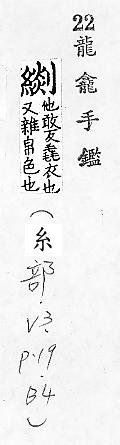 22龍龕手鑑
他敢反毳衣也
又雜帛色也
(糸部.V3.p.19.B4)